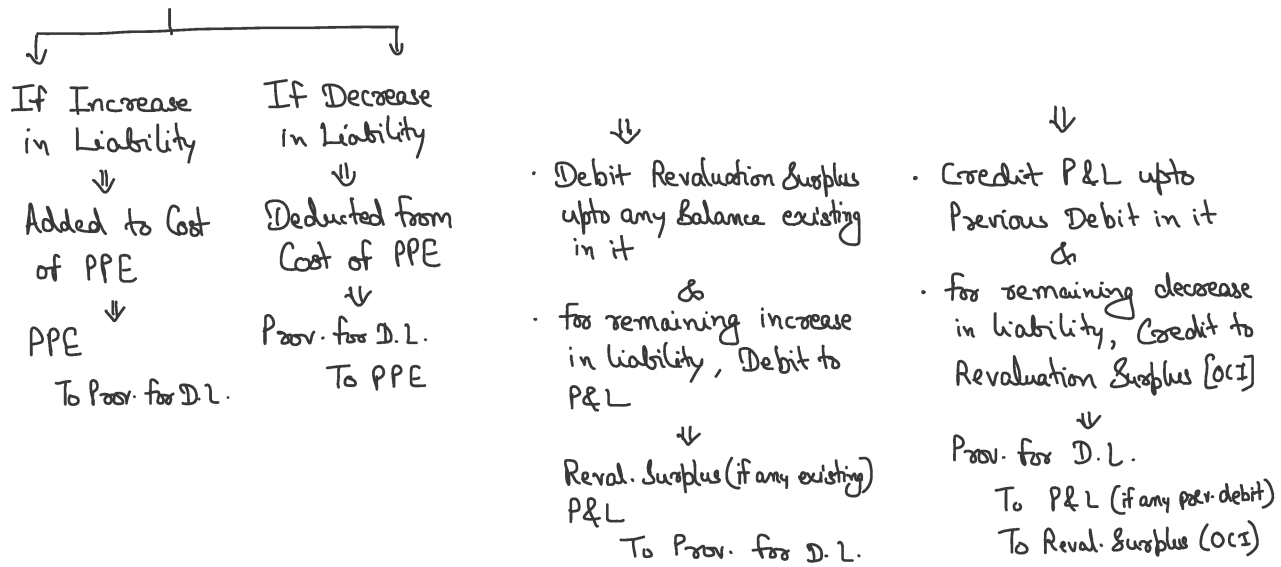 If Increase
in Liability
⇓
Added to Cost
of PPE
⇓
PPE
To Prov. for D.L.
If Decrease
in Liability
⇓
Deducted from
Cost of PPE
⇓
Prov. for D.L.
To PPE
⇓
· Debit Revaluation Surplus
upto any Balance existing
in it
&
· for remaining increase
in liability, Debit to
P&L
⇓
Reval. Surplus (if any existing)
P&L
To Prov. for D.L.
⇓
· Credit P&L upto
Previous Debit in it
&
· for remaining decrease
in liability, Credit to
Revaluation Surplus [OCI]
⇓
Prov. for D.L.
To P&L (if any prev. debit)
To Reval. Surplus (OCI)